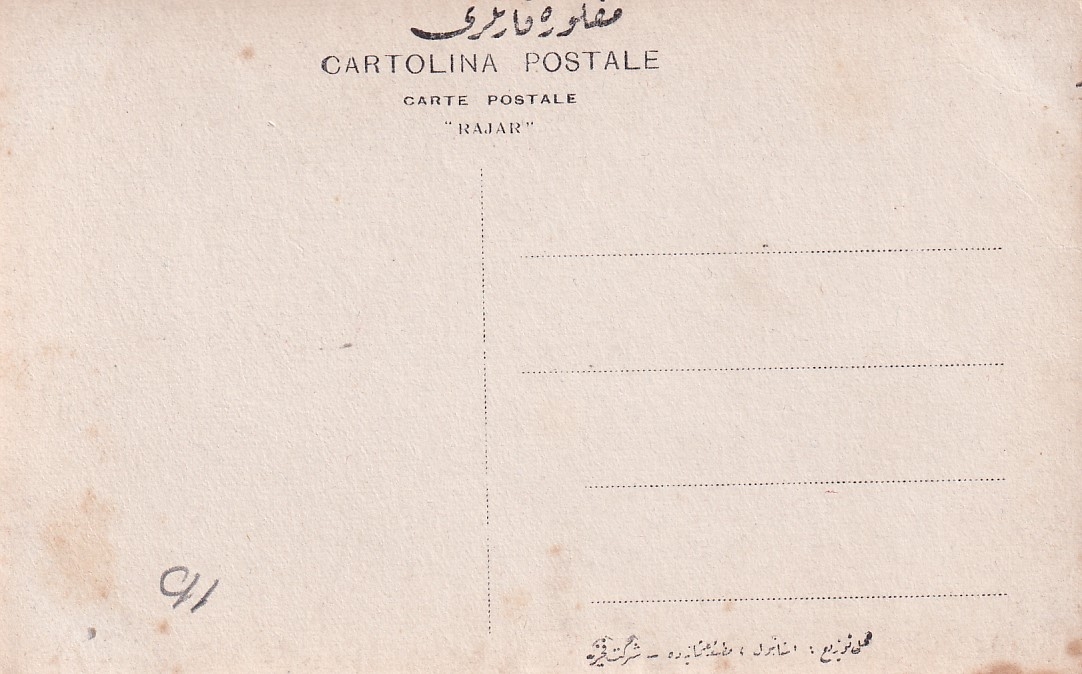 مفكوره قارتلرى
CARTOLINA POSTALE
CARTE POSTALE
"RAJAR"
محل توزيع : استانبول ، – شركت